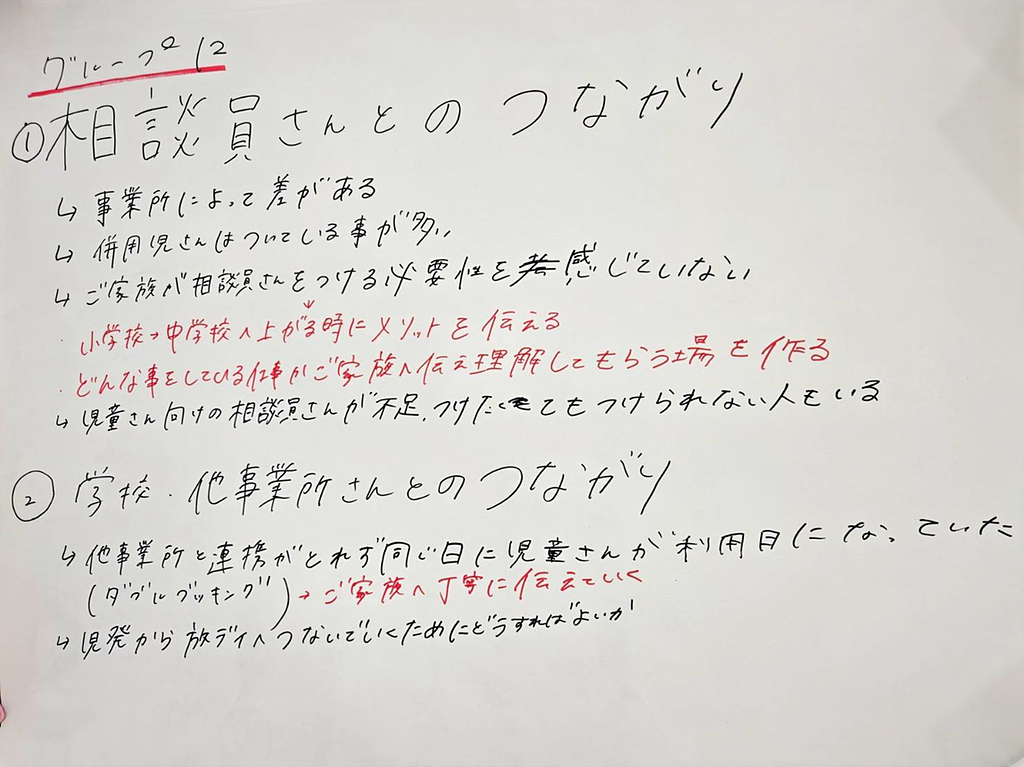 グループ12
①相談員さんとのつながり
↳ 事業所によって差がある
↳ 併用児さんはついている事が多い
↳ ご家族が相談員さんをつける必要性を感じていない
↓
・小学校→中学校へ上がる時にメリットを伝える
・どんな事をしている仕事かご家族へ伝え理解してもらう場を作る
↳ 児童さん向けの相談員さんが不足、つけたくてもつけられない人もいる
② 学校・他事業所さんとのつながり
↳ 他事業所と連携がとれず同じ日に児童さんが利用日になっていた
(ダブルブッキング)→ご家族へ丁寧に伝えていく
↳ 児発から放デイへつないでいくためにどうすればよいか